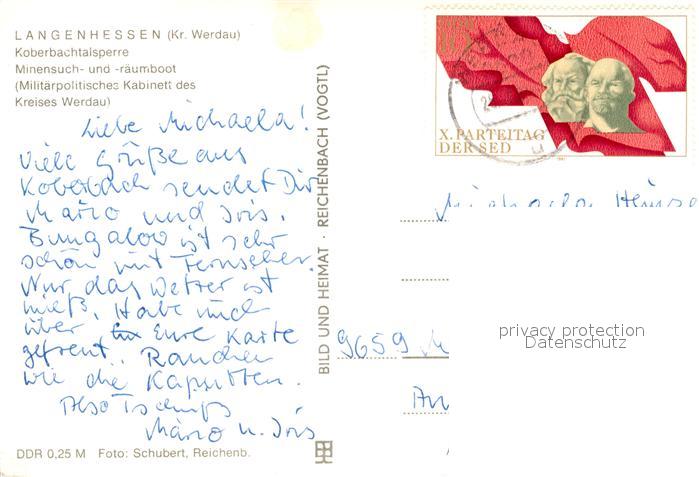 LANGENHESSEN (Kr. Werdau)
Koberbachtalsperre
Minensuch- und -räumboot
(Militärpolitisches Kabinett des
Kreises Werdau)
Liebe Michaela!
Viele Grüße aus
Koberbach sendet Dir
Mario und Iris.
Bungalow ist sehr
schön mit Fernseher.
Nur das Wetter ist
mieß. Habe mich
über Eure Karte
gefreut. Rauchen
wie die
Also Tschüß
Mario u. Iris
DDR 0,25 M Foto: Schubert, Reichenb.
BILD UND HEIMAT · REICHENBACH (VOGTL)
X. PARTEITAG
DER SED
Michaela
9659 M
privacy protection
Datenschutz